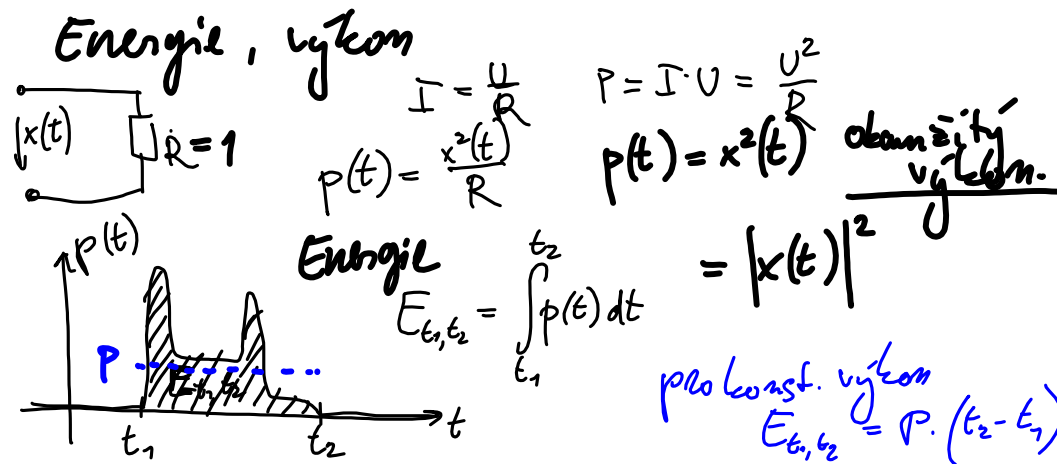 Energie, výkon
x(t)
R = 1
I = U/R
P = I·U = U²/R
p(t) = x²(t)/R
p(t) = x²(t)
okamžitý
výkon.
= |x(t)|²
p(t)
P
E t₁, t₂
t₁
t₂
t
Energie
E t₁,t₂ = ∫ t₁ t₂ p(t) dt
pro konst. výkon
E t₁,t₂ = P. (t₂ - t₁)